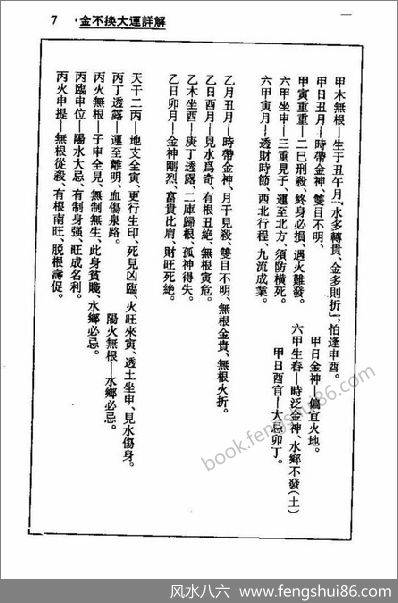 金不換大運詳解 7
甲木無根—生于丑午月，水多轉貴、金多則折，怕逢申酉。
甲日丑月—時帶金神，雙目不明。
甲日金神—偏宜火地。
甲寅重重—二巳刑殺，終身必損，遇火難發。
六甲生春—時泛金神，水鄉不發（土）
六甲坐申—三重見子，運至北方，須防橫死。
甲日酉官—大忌卯丁。
六甲寅月—透財時節，西北行程，九流成業。
乙月丑月—時帶金神，月干見殺，雙目不明，無根金貴、無根火折。
乙日酉月—見水爲奇，有根丑絕，無根寅危。
乙木坐酉—庚丁透露，二庫歸根，孤神得失。
乙日卯月—金神剛烈，富貴比肩，財旺死絕。
天干二丙—地支全寅，更行生印，死見凶臨，火旺來寅，透土坐申，見水傷身。
丙丁透露—運至離明，血傷泉路。
陽火無根—水鄉必忌。
丙火無根—子申全見，無制無生，此身貧賤，水鄉必忌。
丙臨申位—陽水大忌，有制身强，旺成名利。
丙火申提—無根從殺，有根南旺，脫根壽促。
book.fengshui86.com
风水八六 - www.fengshui86.com